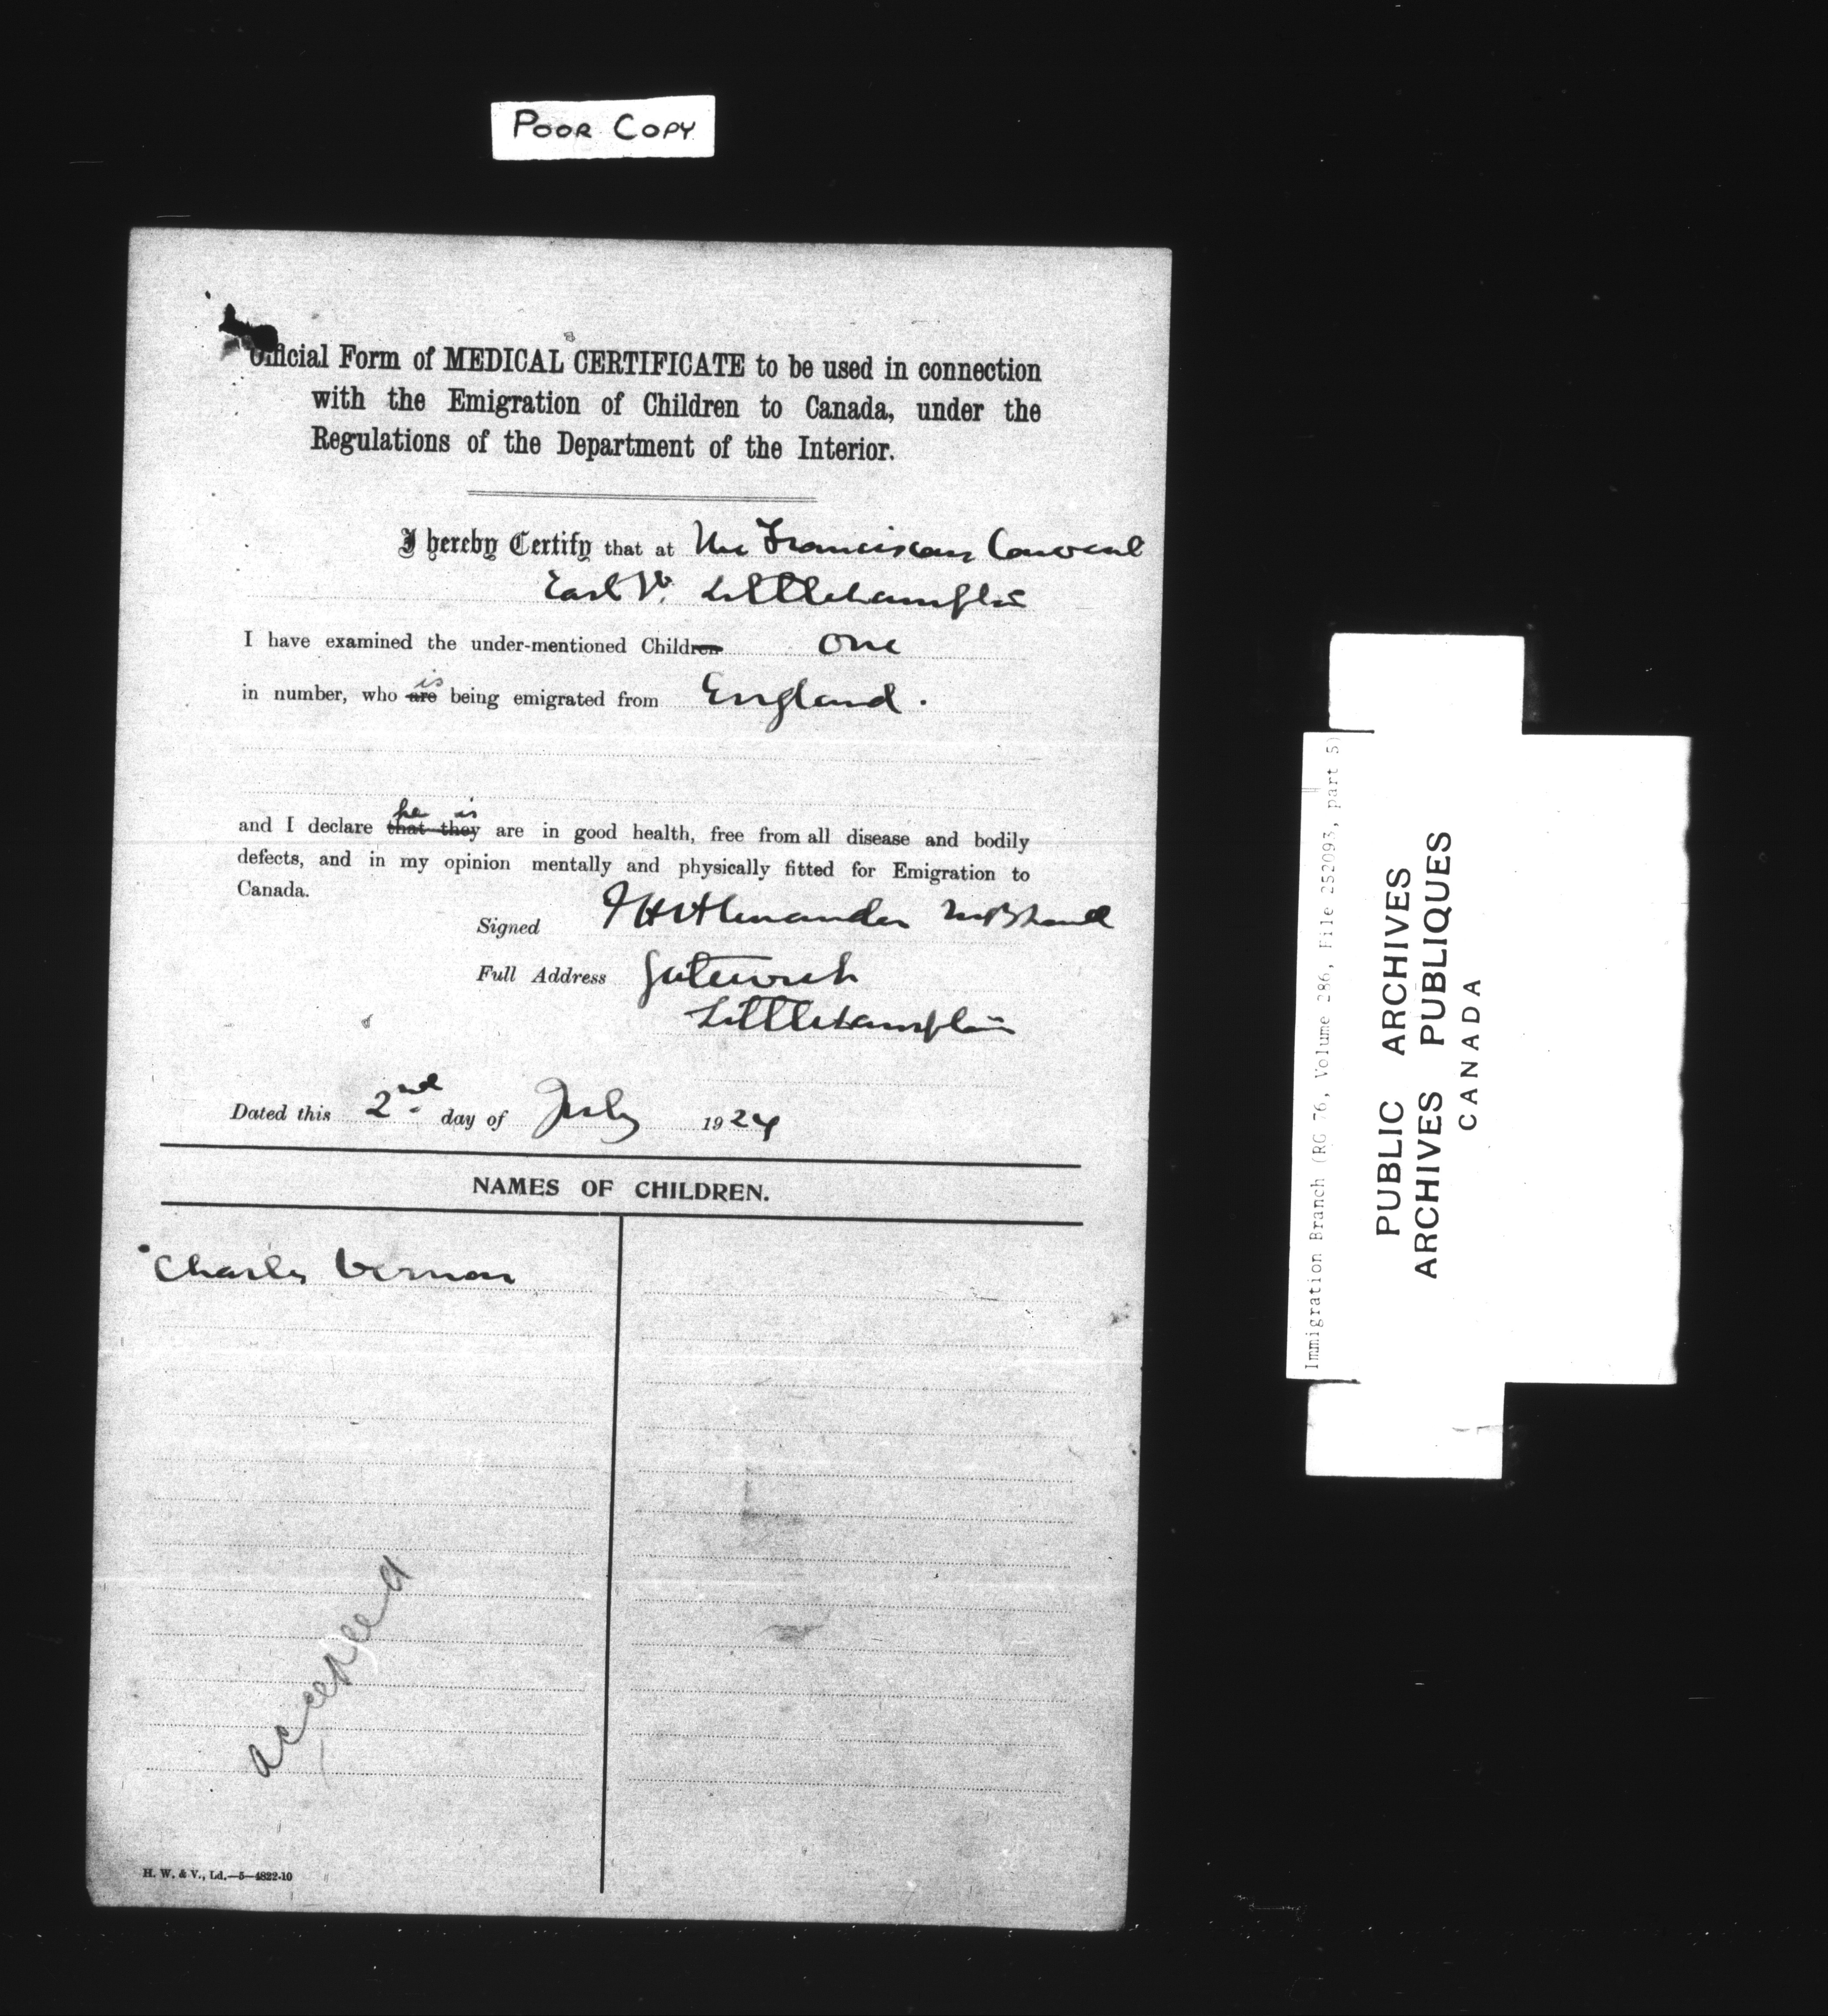 POOR COPY
Official Form of MEDICAL CERTIFICATE to be used in connection
with the Emigration of Children to Canada, under the
Regulations of the Department of the Interior.
I hereby Certify that at The Franciscan Convent
East St. Littlehampton
I have examined the under-mentioned Children one
in number, who are is being emigrated from England.
he is
and I declare that they are in good health, free from all disease and bodily
defects, and in my opinion mentally and physically fitted for Emigration to
Canada.
Signed
Full Address
Littlehampton
Dated this 2nd day of July 1924
NAMES OF CHILDREN.
Charles Vernon
accepted
H. W. & V., Ld.—5—4822-10
Immigration Branch (RG 76, Volume 286, File 252093, part 5)
PUBLIC ARCHIVES
ARCHIVES PUBLIQUES
CANADA